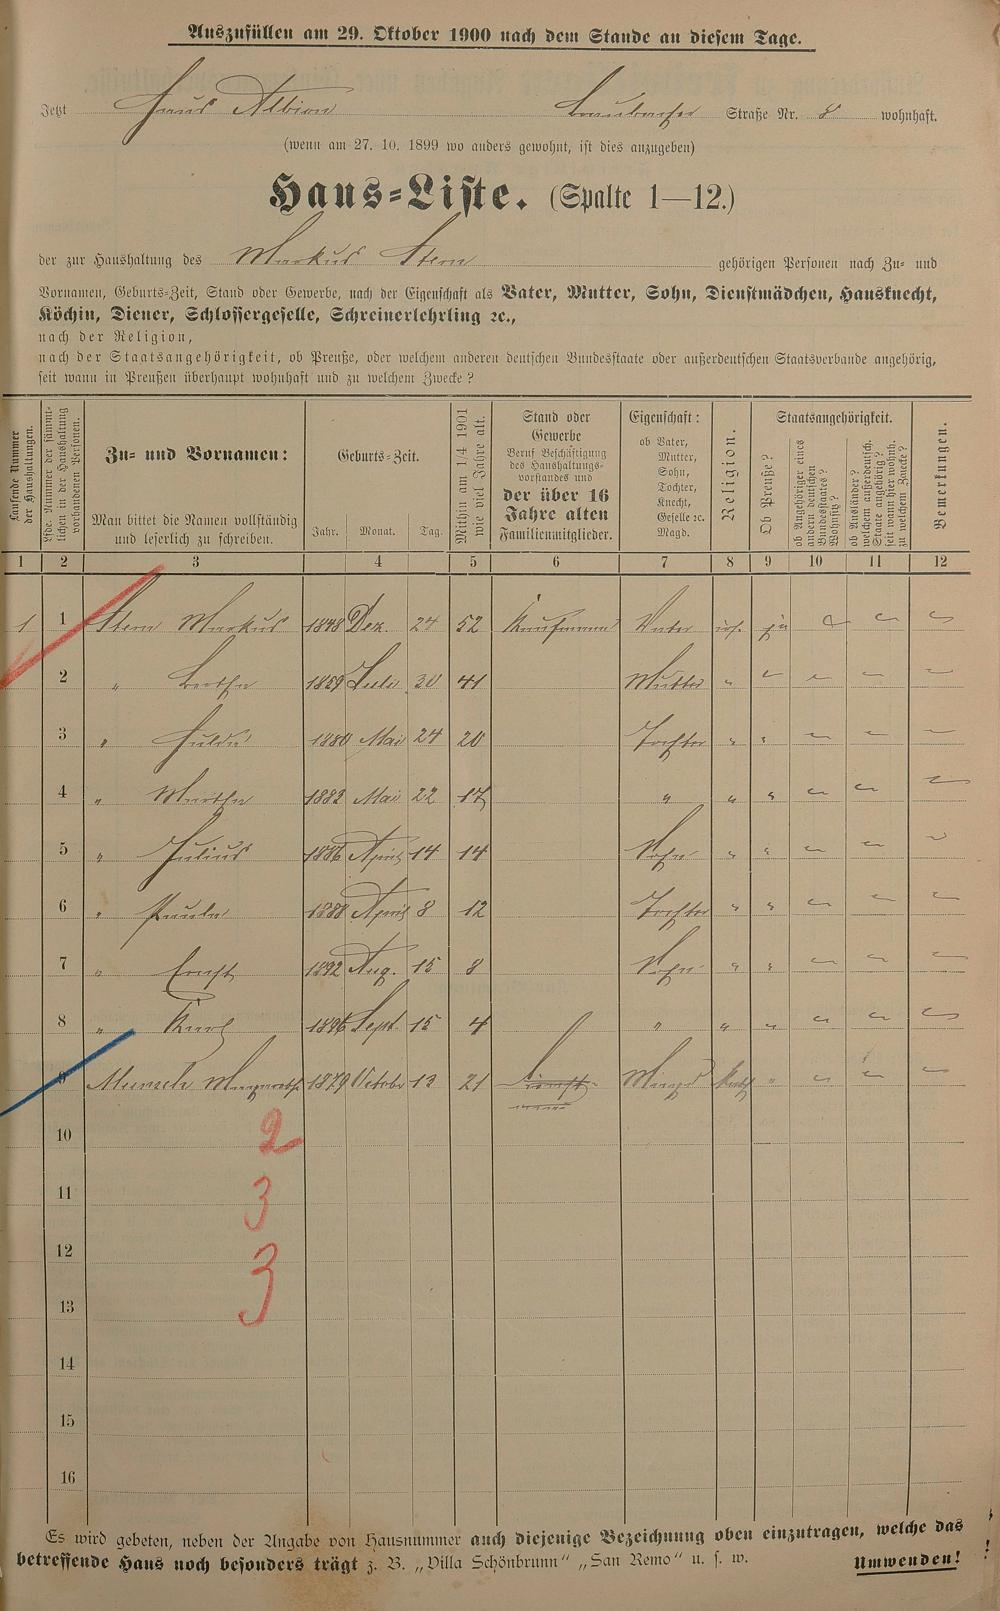 Auszufüllen am 29. Oktober 1900 nach dem Stande an diesem Tage.
Jetzt Haus Albion Braubacher Straße Nr. 8 wohnhaft.
(wenn am 27. 10. 1899 wo anders gewohnt, ist dies anzugeben)
Haus=Liste. (Spalte 1—12.)
der zur Haushaltung des Markus Stern gehörigen Personen nach Zu= und
Vornamen, Geburts=Zeit, Stand oder Gewerbe, nach der Eigenschaft als Vater, Mutter, Sohn, Dienstmädchen, Hausknecht,
Köchin, Diener, Schlossergeselle, Schreinerlehrling ꝛc.,
nach der Religion,
nach der Staatsangehörigkeit, ob Preuße, oder welchem anderen deutschen Bundesstaate oder außerdeutschen Staatsverbande angehörig,
seit wann in Preußen überhaupt wohnhaft und zu welchem Zwecke?
Laufende Nummer
der Haushaltungen.
Lfde. Nummer der sämmt=
lichen in der Haushaltung
vorhandenen Personen.
Zu= und Vornamen:
Man bittet die Namen vollständig
und leserlich zu schreiben.
Geburts=Zeit.
Jahr. Monat. Tag.
Mithin am 1/4 1901
wie viel Jahre alt.
Stand oder
Gewerbe
Beruf Beschäftigung
des Haushaltungs=
vorstandes und
der über 16
Jahre alten
Familienmitglieder.
Eigenschaft:
ob Vater,
Mutter,
Sohn,
Tochter,
Knecht,
Geselle ꝛc.
Magd.
Religion.
Staatsangehörigkeit.
Ob Preuße?
ob Angehöriger eines
andern deutschen
Bundesstaates?
Wohnsitz?
ob Ausländer?
welchem außerdeutsch.
Staate angehörig?
seit wann hier wohnh.
zu welchem Zwecke?
Bemerkungen.
1 2 3 4 5 6 7 8 9 10 11 12
1 1 Stern Markus 1848 Dez. 24 52 Kaufmann Vater isr. ja — — —
2 " Bertha 1859 Juli 30 41 Mutter " — — — —
3 " Hulda 1880 Mai 24 20 Tochter " " — — —
4 " Martha 1883 Mai 22 17 " " " — — —
5 " Julius 1886 April 14 14 Sohn " " — — —
6 " Paula 1888 April 8 12 Tochter " " — — —
7 " Ernst 1892 Aug. 15 8 Sohn " " — — —
8 " Karl 1896 Sept. 15 4 " " " — — —
9 Munsch Margareth. 1879 October 13 21 Magd kath " — — —
10 2
11 3
12 3
13
14
15
16
Es wird gebeten, neben der Angabe von Hausnummer auch diejenige Bezeichnung oben einzutragen, welche das
betreffende Haus noch besonders trägt z. B. „Villa Schönbrunn" „San Remo" u. s. w. Umwenden!